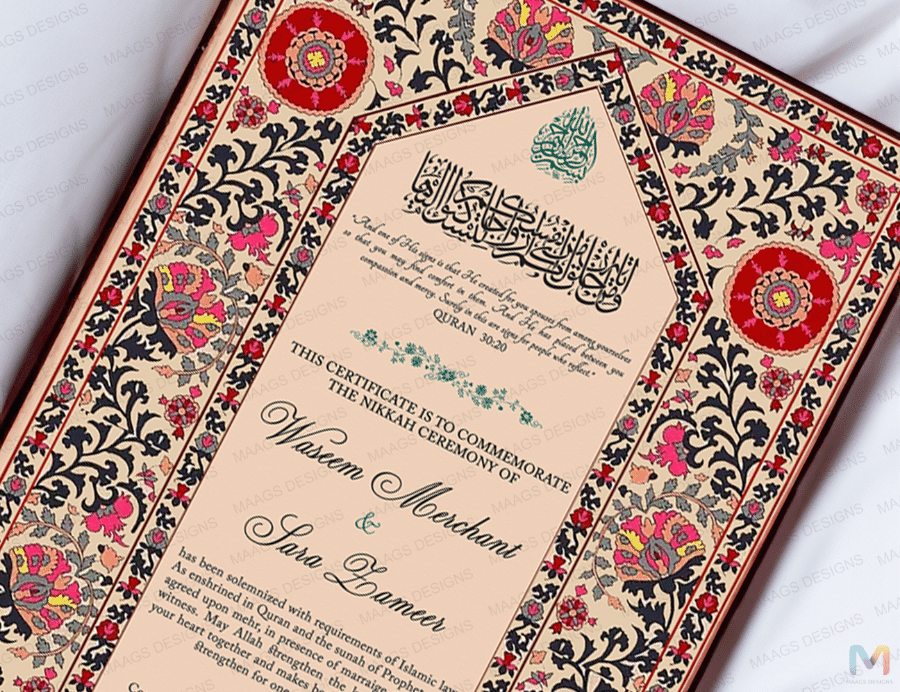 بسم الله الرحمن الرحيم
ومن آياته أن خلق لكم من أنفسكم أزواجا لتسكنوا إليها
"And one of His signs is that He created for you spouses from among yourselves
so that you may find comfort in them. And He has placed between you
compassion and mercy. Surely in this are signs for people who reflect."
QURAN 30:20
THIS CERTIFICATE IS TO COMMEMORATE
THE NIKKAH CEREMONY OF
Waseem Merchant
&
Sara Zameer
has been solemnized with requirements of Islamic law
As enshrined in Quran and the sunah of Prophet
agreed upon mehr, in presence of marraige
witness. May Allah strengthen the
your heart together and makes
strengthen for
MAAGS DESIGNS